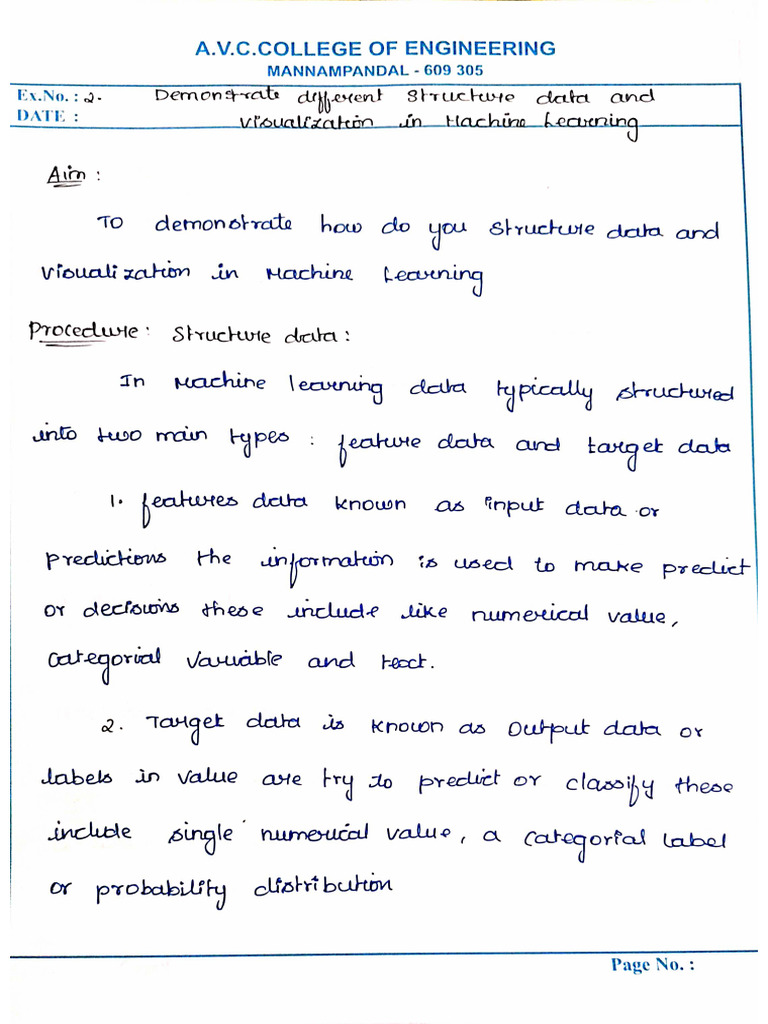 A.V.C.COLLEGE OF ENGINEERING
MANNAMPANDAL - 609 305
Ex.No. : 2. Demonstrate different structure data and
DATE : visualization in Machine Learning
Aim :
To demonstrate how do you structure data and
visualization in Machine Learning
Procedure : structure data :
In Machine learning data typically structured
into two main types : feature data and target data
1. features data known as input data or
predictions the information is used to make predict
or decisions these include like numerical value,
categorial variable and text.
2. Target data is known as output data or
labels in value are try to predict or classify these
include single numerical value, a categorial label
or probability distribution
Page No. :